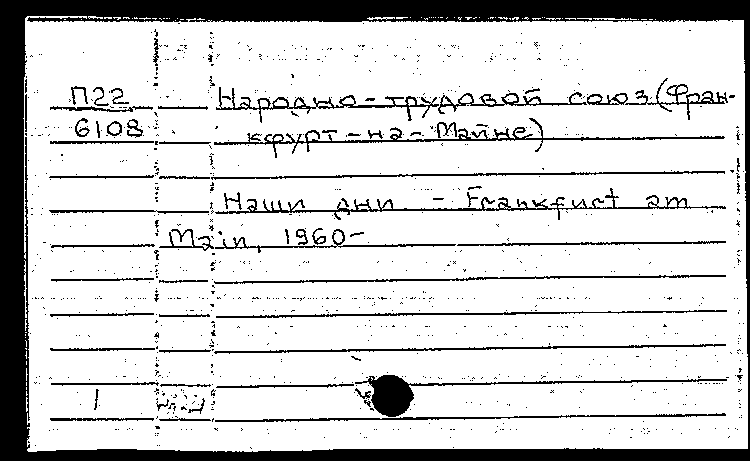 П22 Народно-трудовой союз (Фран-
6108 кфурт-на-Майне)
Наши дни - Frankfurt am
Main, 1960-
1